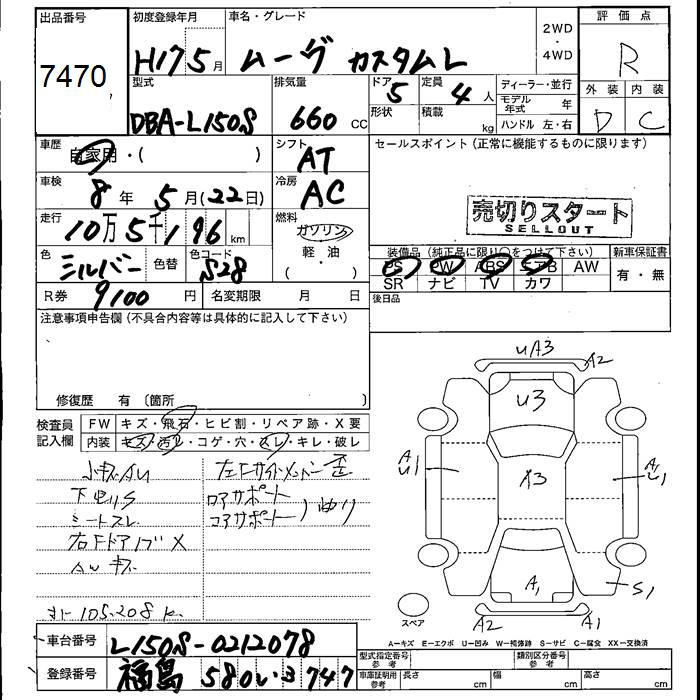 出品番号
7470
初度登録年月
H17 5月
車名・グレード
ムーヴ カスタムL
2WD
・
4WD
評価点
R
外装 内装
D C
型式
DBA-L150S
排気量
660 CC
ドア
5
定員
4人
形状
積載
kg
ディーラー・並行
モデル年式 年
ハンドル 左・右
車歴
自家用・( )
シフト
AT
セールスポイント(正常に機能するものに限ります)
車検
8年 5月(22日)
冷房
AC
売切りスタート
SELLOUT
走行
10万5千196 km
燃料
ガソリン
軽・油
( )
色
シルバー
色替
色コード
S28
装備品(純正品に限り○をつけて下さい)
PS PW ABS エアB AW
SR ナビ TV カワ
新車保証書
有・無
R券
9100 円
名変期限 月 日
後日品
注意事項申告欄(不具合内容等は具体的に記入して下さい)
修復歴 有〔箇所 〕
検査員
記入欄
FW キズ・飛石・ヒビ割・リペア跡・X要
内装 キズ・汚レ・コゲ・穴・スレ・キレ・破レ
下回りS
シートスレ
右Fドア
左Fサイドメンバー歪
ロアサポート
コアサポート
105.208k
UA3
A2
U3
A
U1
X3
A
U1
A1
S1
スペア
A2
A1
A=キズ E=エクボ U=凹み W=補修跡 S=サビ C=腐食 XX=交換済
車台番号
L150S-0212078
登録番号
福島 580 い 3747
型式指定番号
参考
類別区分番号
参考
車庫証明用
参考
長さ cm
幅 cm
高さ cm